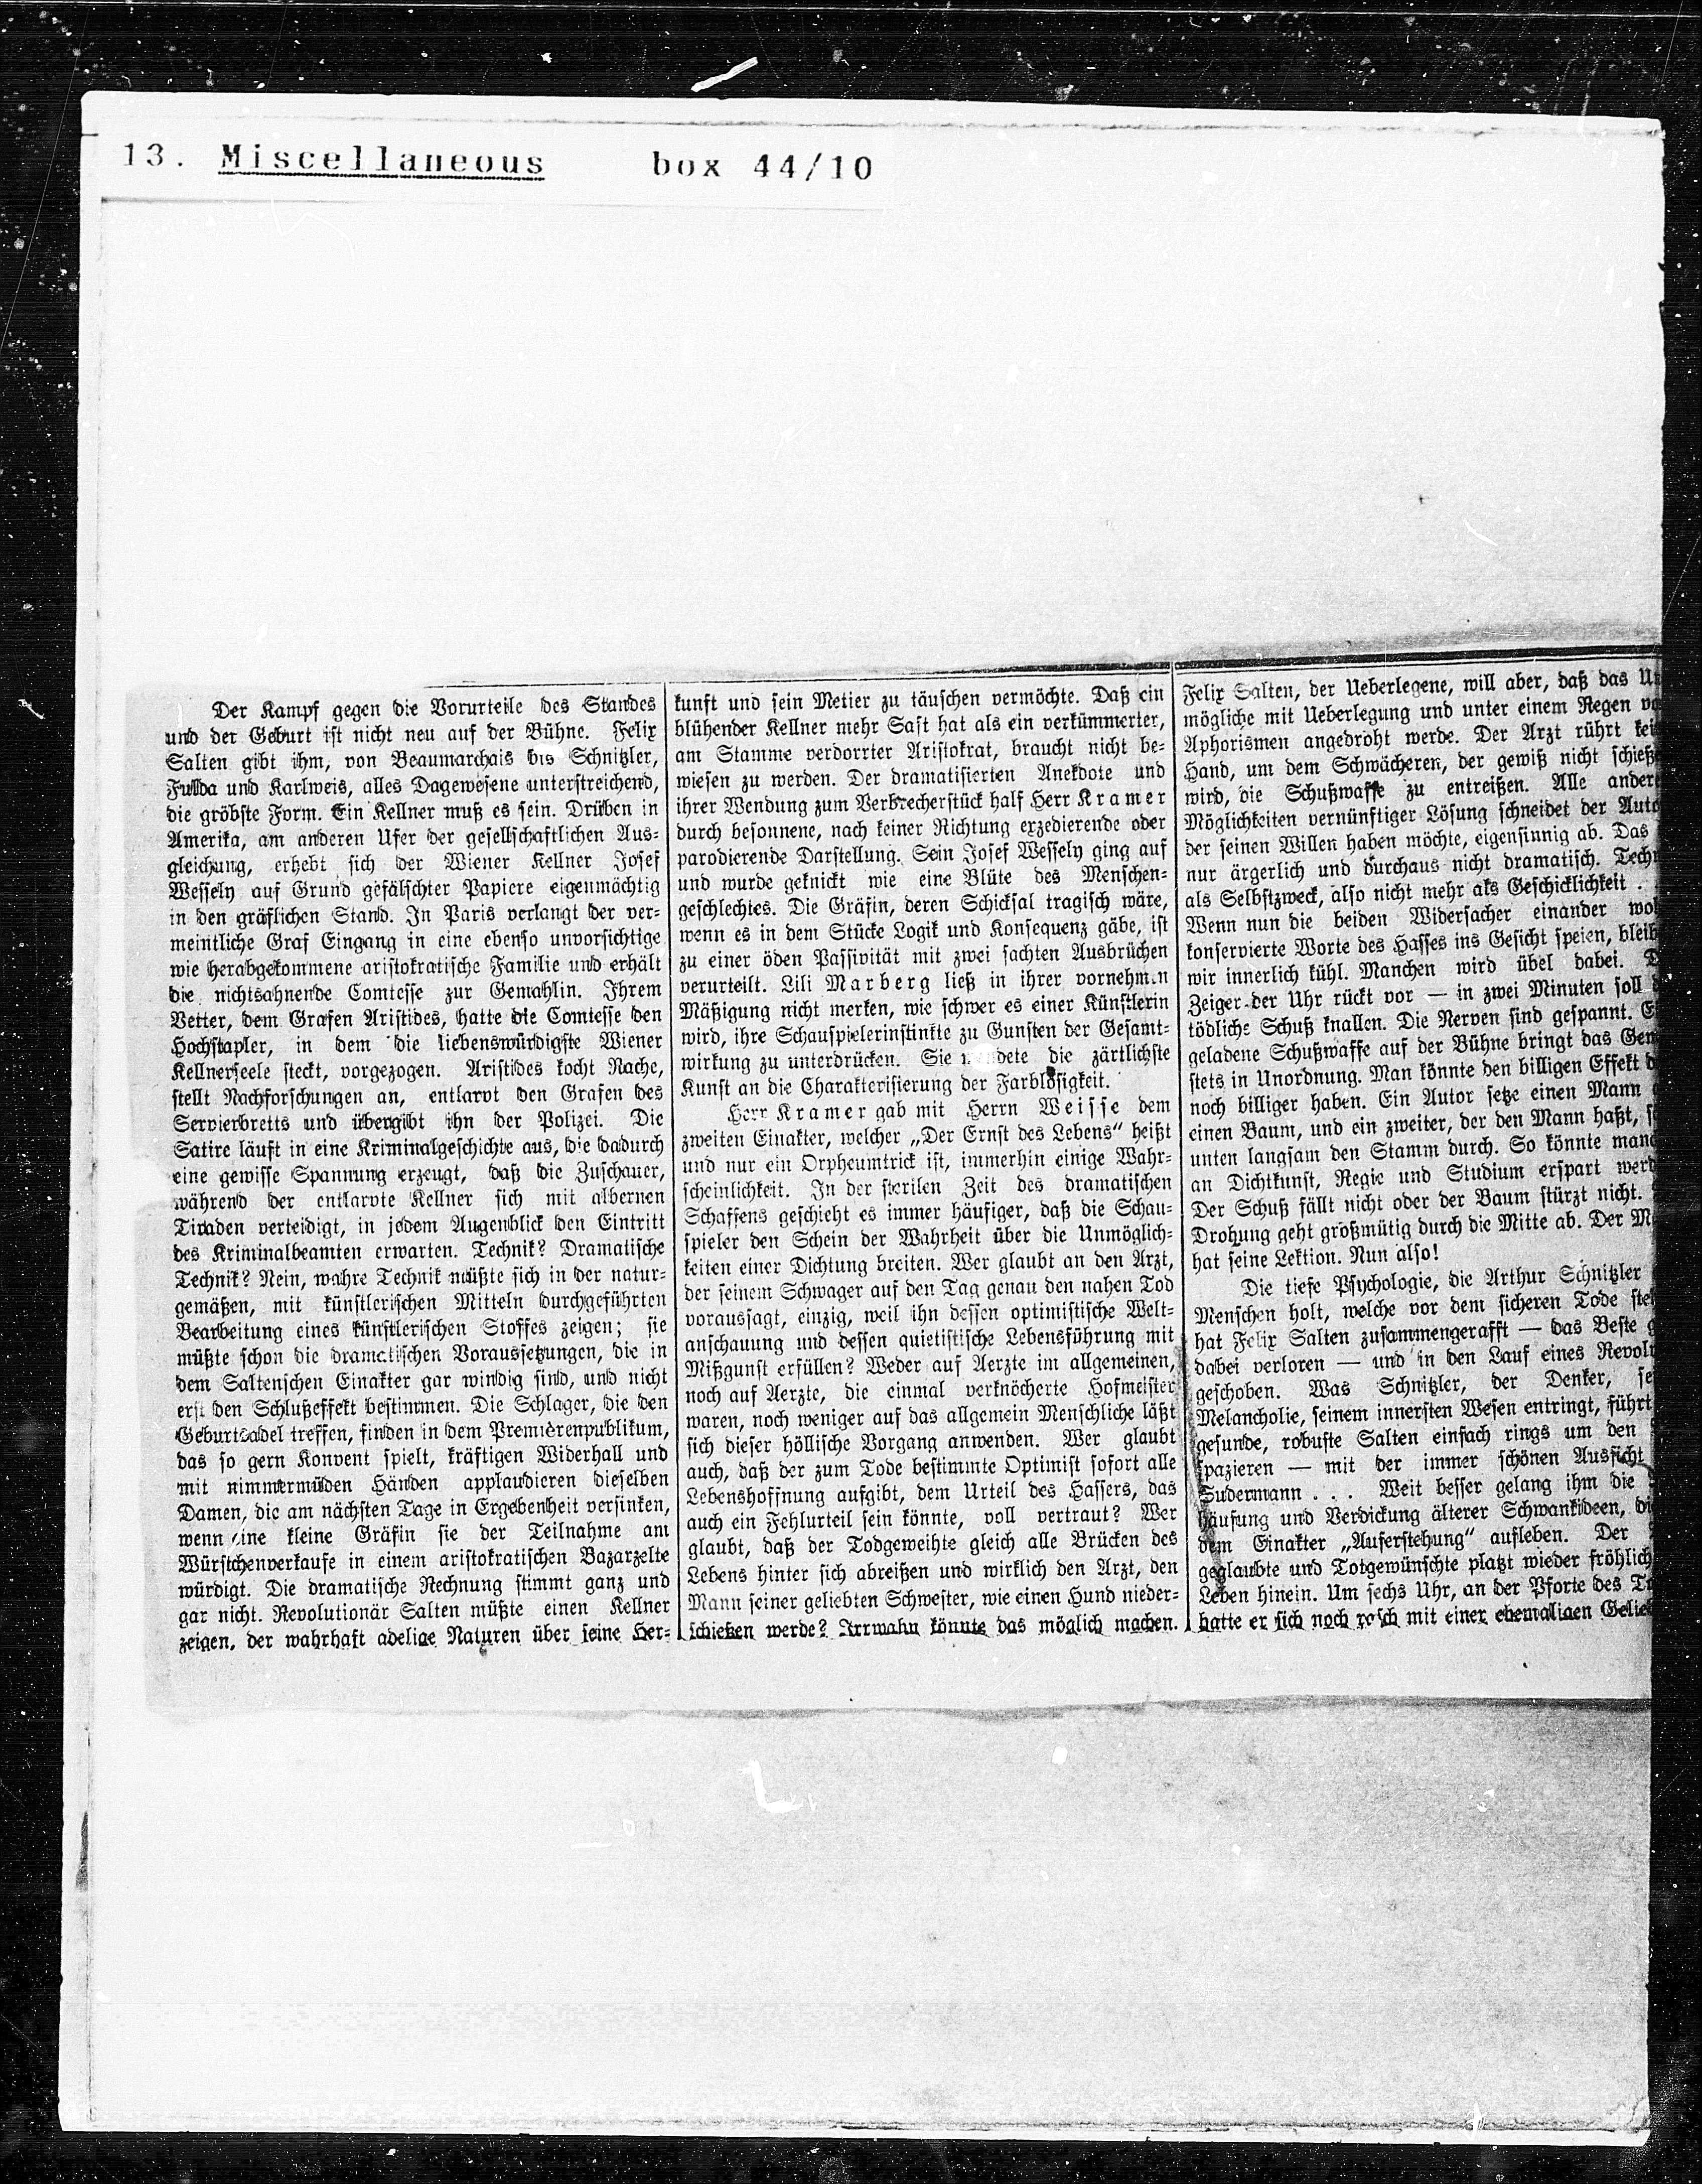 13. Miscellaneous box 44/10
Der Kampf gegen die Vorurteile des Standes
und der Geburt ist nicht neu auf der Bühne. Felix
Salten gibt ihm, von Beaumarchais bis Schnitzler,
Fulda und Karlweis, alles Dagewesene unterstreichend,
die gröbste Form. Ein Kellner muß es sein. Drüben in
Amerika, am anderen Ufer der gesellschaftlichen Aus-
gleichung, erhebt sich der Wiener Kellner Josef
Wessely auf Grund gefälschter Papiere eigenmächtig
in den gräflichen Stand. In Paris verlangt der ver-
meintliche Graf Eingang in eine ebenso unvorsichtige
wie herabgekommene aristokratische Familie und erhält
die nichtsahnende Comtesse zur Gemahlin. Ihrem
Vetter, dem Grafen Aristides, hatte die Comtesse den
Hochstapler, in dem die liebenswürdigste Wiener
Kellnerseele steckt, vorgezogen. Aristides kocht Rache,
stellt Nachforschungen an, entlarvt den Grafen des
Servierbretts und übergibt ihn der Polizei. Die
Satire läuft in eine Kriminalgeschichte aus, die dadurch
eine gewisse Spannung erzeugt, daß die Zuschauer,
während der entlarvte Kellner sich mit albernen
Tiraden verteidigt, in jedem Augenblick den Eintritt
des Kriminalbeamten erwarten. Technik? Dramatische
Technik? Nein, wahre Technik müßte sich in der natur-
gemäßen, mit künstlerischen Mitteln durchgeführten
Bearbeitung eines künstlerischen Stoffes zeigen; sie
müßte schon die dramatischen Voraussetzungen, die in
dem Saltenschen Einakter gar windig sind, und nicht
erst den Schlußeffekt bestimmen. Die Schlager, die den
Geburtsadel treffen, finden in dem Premièrenpublikum,
das so gern Konvent spielt, kräftigen Widerhall und
mit nimmermüden Händen applaudieren dieselben
Damen, die am nächsten Tage in Ergebenheit versinken,
wenn eine kleine Gräfin sie der Teilnahme am
Würstchenverkaufe in einem aristokratischen Bazarzelte
würdigt. Die dramatische Rechnung stimmt ganz und
gar nicht. Revolutionär Salten müßte einen Kellner
zeigen, der wahrhaft adelige Naturen über seine Her-
kunft und sein Metier zu täuschen vermöchte. Daß ein
blühender Kellner mehr Saft hat als ein verkümmerter,
am Stamme verdorrter Aristokrat, braucht nicht be-
wiesen zu werden. Der dramatisierten Anekdote und
ihrer Wendung zum Verbrecherstück half Herr Kramer
durch besonnene, nach keiner Richtung exzedierende oder
parodierende Darstellung. Sein Josef Wessely ging auf
und wurde geknickt wie eine Blüte des Menschen-
geschlechtes. Die Gräfin, deren Schicksal tragisch wäre,
wenn es in dem Stücke Logik und Konsequenz gäbe, ist
zu einer öden Passivität mit zwei sachten Ausbrüchen
verurteilt. Lili Marberg ließ in ihrer vornehmen
Mäßigung nicht merken, wie schwer es einer Künstlerin
wird, ihre Schauspielerinstinkte zu Gunsten der Gesamt-
wirkung zu unterdrücken. Sie wendete die zärtlichste
Kunst an die Charakterisierung der Farblosigkeit.
Herr Kramer gab mit Herrn Weisse dem
zweiten Einakter, welcher „Der Ernst des Lebens“ heißt
und nur ein Orpheumtrick ist, immerhin einige Wahr-
scheinlichkeit. In der sterilen Zeit des dramatischen
Schaffens geschieht es immer häufiger, daß die Schau-
spieler den Schein der Wahrheit über die Unmöglich-
keiten einer Dichtung breiten. Wer glaubt an den Arzt,
der seinem Schwager auf den Tag genau den nahen Tod
voraussagt, einzig, weil ihn dessen optimistische Welt-
anschauung und dessen quietistische Lebensführung mit
Mißgunst erfüllen? Weder auf Aerzte im allgemeinen,
noch auf Aerzte, die einmal verknöcherte Hofmeister
waren, noch weniger auf das allgemein Menschliche läßt
sich dieser höllische Vorgang anwenden. Wer glaubt
auch, daß der zum Tode bestimmte Optimist sofort alle
Lebenshoffnung aufgibt, dem Urteil des Hassers, das
auch ein Fehlurteil sein könnte, voll vertraut? Wer
glaubt, daß der Todgeweihte gleich alle Brücken des
Lebens hinter sich abreißen und wirklich den Arzt, den
Mann seiner geliebten Schwester, wie einen Hund nieder-
schießen werde? Irrwahn könnte das möglich machen.
Felix Salten, der Ueberlegene, will aber, daß das
mögliche mit Ueberlegung und unter einem Regen
Aphorismen angedroht werde. Der Arzt rührt
Hand, um dem Schwächeren, der gewiß nicht
wird, die Schußwaffe zu entreißen. Alle
Möglichkeiten vernünftiger Lösung schneidet der
der seinen Willen haben möchte, eigensinnig ab. Das
nur ärgerlich und durchaus nicht dramatisch.
als Selbstzweck, also nicht mehr als Geschicklichkeit . .
Wenn nun die beiden Widersacher einander
konservierte Worte des Hasses ins Gesicht speien,
wir innerlich kühl. Manchen wird übel dabei.
Zeiger der Uhr rückt vor — in zwei Minuten soll
tödliche Schuß knallen. Die Nerven sind gespannt.
geladene Schußwaffe auf der Bühne bringt das
stets in Unordnung. Man könnte den billigen Effekt
noch billiger haben. Ein Autor setze einen Mann
einen Baum, und ein zweiter, der den Mann haßt,
unten langsam den Stamm durch. So könnte
an Dichtkunst, Regie und Studium erspart
Der Schuß fällt nicht oder der Baum stürzt nicht.
Drohung geht großmütig durch die Mitte ab. Der
hat seine Lektion. Nun also!
Die tiefe Psychologie, die Arthur Schnitzler
Menschen holt, welche vor dem sicheren Tode
hat Felix Salten zusammengerafft — das Beste
dabei verloren — und in den Lauf eines
geschoben. Was Schnitzler, der Denker,
Melancholie, seinem innersten Wesen entringt, führt
gesunde, robuste Salten einfach rings um den
spazieren — mit der immer schönen Aussicht
Sudermann . . . Weit besser gelang ihm die
häufung und Verdickung älterer Schwankideen,
dem Einakter „Auferstehung“ aufleben. Der
geglaubte und Totgewünschte platzt wieder fröhlich
Leben hinein. Um sechs Uhr, an der Pforte des
hatte er sich noch rasch mit einer ehemaligen